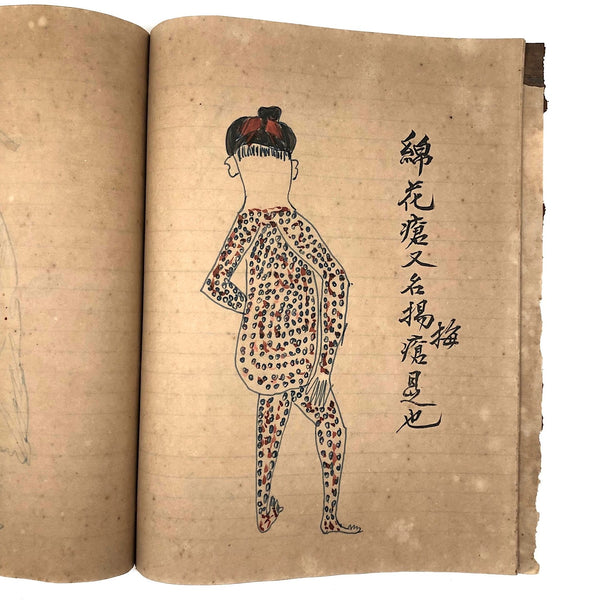 綿花瘡又名揚梅瘡是也